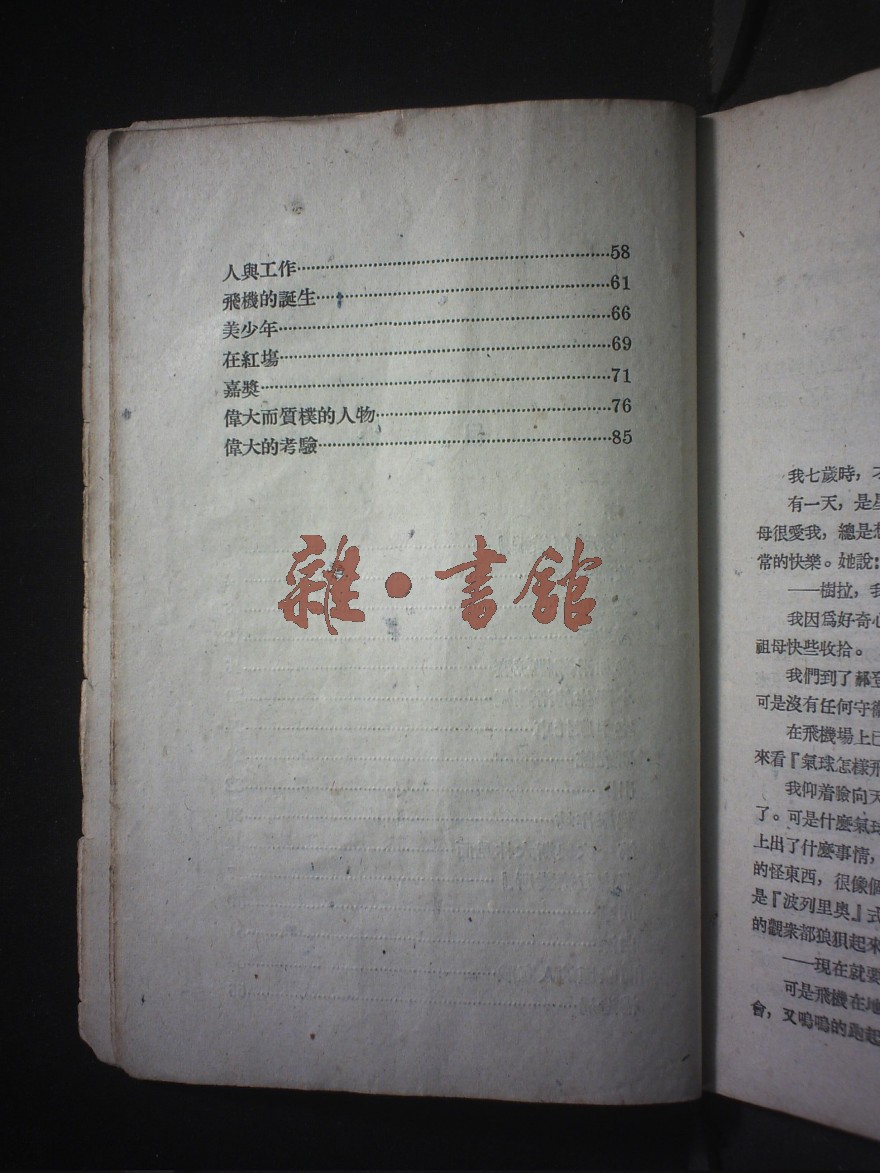 人與工作……58
飛機的誕生……61
美少年……66
在紅場……69
嘉獎……71
偉大而質樸的人物……76
偉大的考驗……85
雜·書館
我七歲時，
有一天，是
母很愛我，總是想
常的快樂。她說：
——樹拉，我
我因爲好奇心
祖母快些收拾。
我們到了
可是沒有任何守
在飛機場上已
來看『氣球怎樣飛
我仰着臉向天
了。可是什麼氣球
上出了什麼事情，
的怪東西，很像個
是『波列里奥』式
的觀衆都狼狽起來
——現在就要
可是飛機在地
會，又嗚嗚的跑起